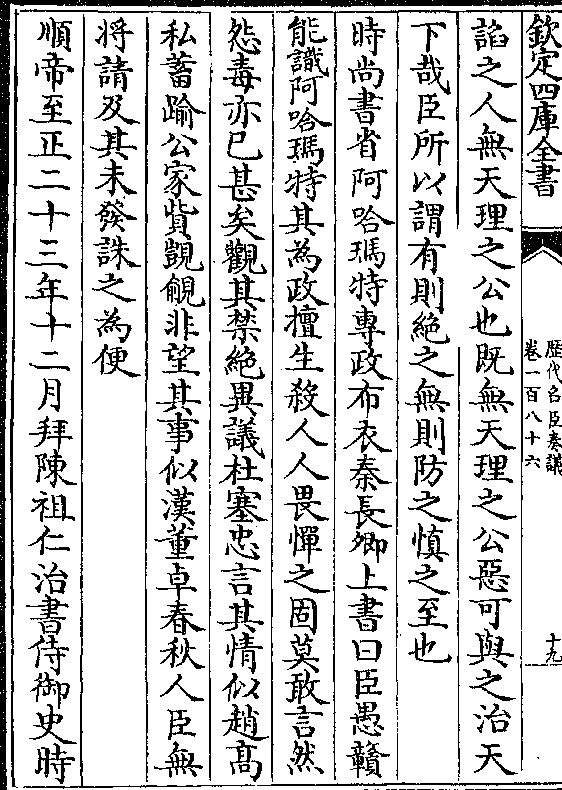 欽定四庫全書
歴代名臣奏議
卷一百八十六
十九
諂之人無天理之公也既無天理之公惡可與之治天
下哉臣所以謂有則絶之無則防之慎之至也
時尚書省阿哈瑪特專政布衣秦長卿上書曰臣愚贛
能識阿哈瑪特其為政擅生殺人人畏憚之固莫敢言然
怨毒亦已甚矣觀其禁絶異議杜塞忠言其情似趙髙
私蓄踰公家貲覬覦非望其事似漢董卓春秋人臣無
將請及其未發誅之為便
順帝至正二十三年十二月拜陳祖仁治書侍御史時